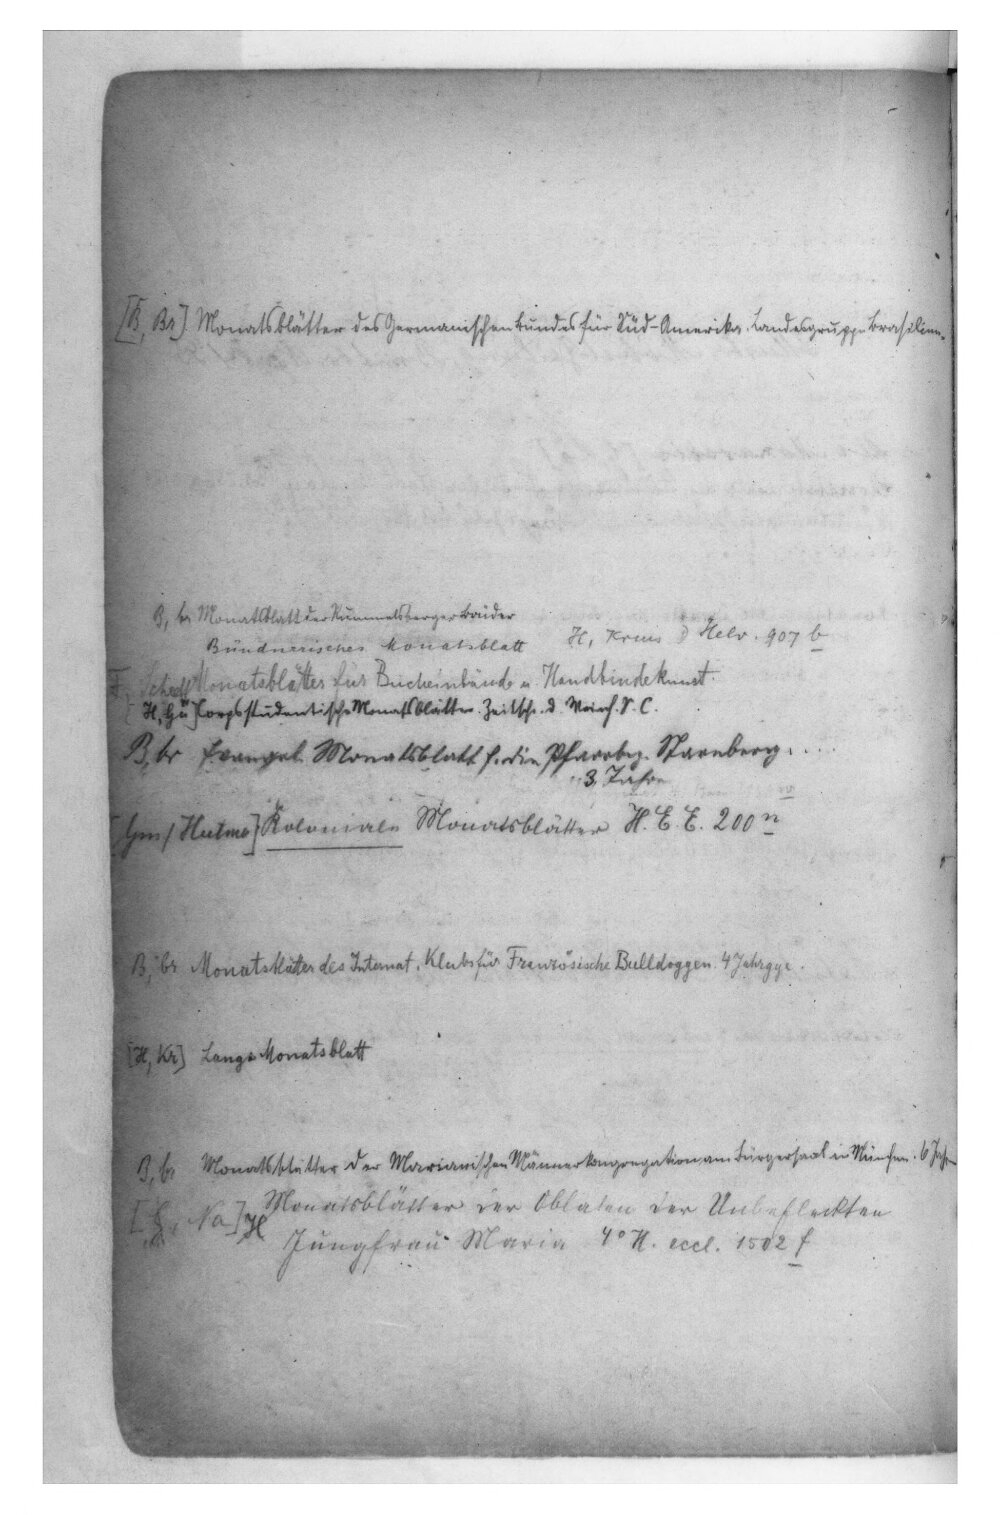 [B, Br] Monatsblätter des Germanischen Bundes für Süd-Amerika. Landesgruppe Brasilien.
B, br Monatsblatt der Rummelsberger Brüder
Bündnerisches Monatsblatt H, Krus Helv. 907 b
Monatsblätter für Bucheinbände u. Handbindekunst.
[H, Hü] Corpsstudentische Monatsblätter. Zeitschr. d. S. C.
B, br Evangel. Monatsblatt f. die Pfarrbez. Starnberg. ....
3 Jahre
Koloniale Monatsblätter H. E. E. 200 n
B, br Monatsblätter des Internat. Klubs für Französische Bulldoggen. 4 Jahrgge.
[H, Kr] Lange Monatsblatt
B, br Monatsblätter der Marianischen Männerkongregation am Bürgersaal in München. 6 Jahre
[ , Na] H Monatsblätter der Oblaten der Unbefleckten
Jungfrau Maria 4° H. eccl. 1502 f